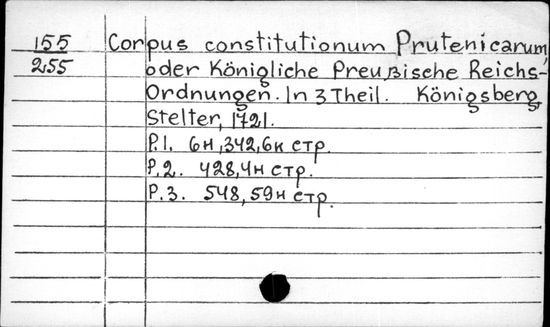 155 Corpus constitutionum Prutenicarum,
255 oder Königliche Preußische Reichs-
Ordnungen. In 3 Theil. Königsberg
Stelter, 1721.
P.1. 6н, 342, 6н стр.
P.2. 428, 4н стр.
P.3. 548, 59н стр.